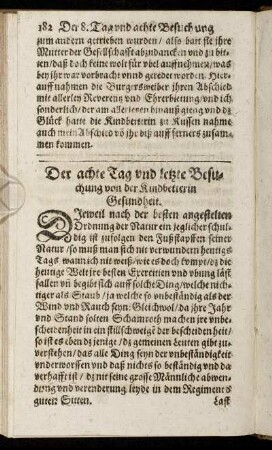 182 Der 8. Tag vnd achte Besuchung
zum andern getrieben wurden / also bart sie ihre
Mutter der Gesellschafft abzudancken vnd zu bit-
ten / daß doch keine wolt für vbel auffnemen / was
bey ihr war vorbracht vnnd geredet worden. Hier-
auff nahmen die Burgersweiber ihren Abschied
mit allerley Reverentz vnd Ehrerbietung / vnd ich
sonderlich / der am aller letzten hinauß gieng / vnd dz
Glück hatte die Kindbetterin zu Küssen nahme
auch mein Abschied võ ihr biß auff ferners zusam-
men kommen.
Der achte Tag vnd letzte Besu-
chung von der Kindbetterin
Gesundheit.
DJeweil nach der besten angestelten
Ordnung der Natur ein jeglicher schul-
dig ist zufolgen den Fußstapffen seiner
Natur / so muß man sich nit verwundern heutiges
Tags wann ich nit weiß / wie es doch kompt / dz die
heutige Welt jre besten Exercitien vnd vbung läst
fallen vñ begibt sich auff solche Ding / welche nich-
tiger als Staub / ja welche so vnbeständig als der
Wind vnd Rauch seyn: Gleichwol / da jhre Jahr
vnd Stand solten Schamroth machen jre vnbe-
scheidenheit in ein stillschweigẽ der bescheidenheit /
so ist es eben dz jenige / dz gemeinen Leuten gibt zu-
verstehen / das alle Ding seyn der vnbeständigkeit
vnderworffen vnd daß nichts so beständig vnd da
verhafft ist / dz nit seine grosse Männliche abwen-
dung vnd verenderung leyde in dem Regiment
guten Sitten.
Last